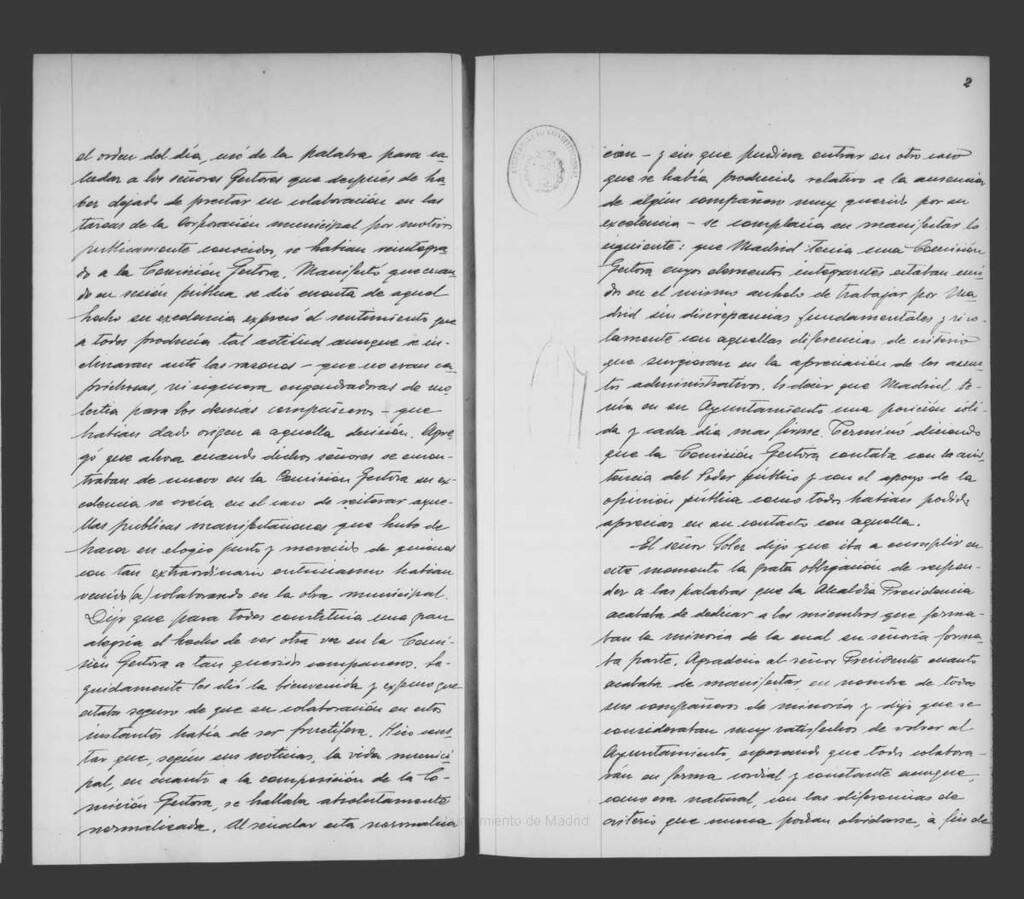 el orden del día, usó de la palabra para sa-
ludar a los señores Gestores que después de ha-
ber dejado de prestar su colaboración en las
tareas de la Corporación municipal por motivos
publicamente conocidos, se habían reintegra-
do a la Comisión Gestora. Manifestó que cuan-
do en sesión pública se dió cuenta de aquel
hecho su excelencia expresó el sentimiento que
a todos producía tal actitud aunque se in-
clinaran ante las razones - que no eran ca-
prichosas, ni siquiera engendradoras de mo-
lestia para los demás compañeros - que
habían dado origen a aquella decisión. Agre-
gó que ahora cuando dichos señores se encon-
traban de nuevo en la Comisión Gestora su ex-
celencia se creía en el caso de reiterar aque-
llas publicas manifestaciones que hubo de
hacer en elogio justo y merecido de quienes
con tan extraordinario entusiasmo habían
venido (a) colaborando en la obra municipal.
Dijo que para todos constituía una gran
alegría el hecho de ver otra vez en la Comi-
sión Gestora a tan queridos compañeros. Se-
guidamente les dió la bienvenida y expuso que
estaba seguro de que su colaboración en estos
instantes había de ser fructífera. Hizo cons-
tar que, según sus noticias, la vida munici-
pal, en cuanto a la composición de la Co-
misión Gestora, se hallaba absolutamente
normalizada. Al señalar esta normaliza
2
ción - y sin que pudiera entrar en otro caso
que se había producido relativo a la ausencia
de algún compañero muy querido por su
excelencia - se complacía en manifestar lo
siguiente: que Madrid tenía una Comisión
Gestora cuyos elementos integrantes estaban uni-
dos en el mismo anhelo de trabajar por Ma-
drid sin discrepancias fundamentales y so-
lamente con aquellas diferencias de criterio
que surgieran en la apreciación de los asun-
tos administrativos. Es decir que Madrid te-
nía en su Ayuntamiento una posición sóli-
da y cada día mas firme. Terminó diciendo
que la Comisión Gestora contaba con la asis-
tencia del Poder público y con el apoyo de la
opinión pública como todos habían podido
apreciar en su contacto con aquella.
El señor Soler dijo que iba a cumplir en
este momento la grata obligación de respon-
der a las palabras que la Alcaldía Presidencia
acababa de dedicar a los miembros que forma-
ban la minoría de la cual su señoría forma-
ba parte. Agradeció al señor Presidente cuanto
acababa de manifestar, en nombre de todos
sus compañeros de minoría y dijo que se
consideraban muy satisfechos de volver al
Ayuntamiento, esperando que todos colabora-
rán en forma cordial y constante aunque,
como era natural, con las diferencias de
criterio que nunca podían olvidarse, a fin de
Ayuntamiento de Madrid